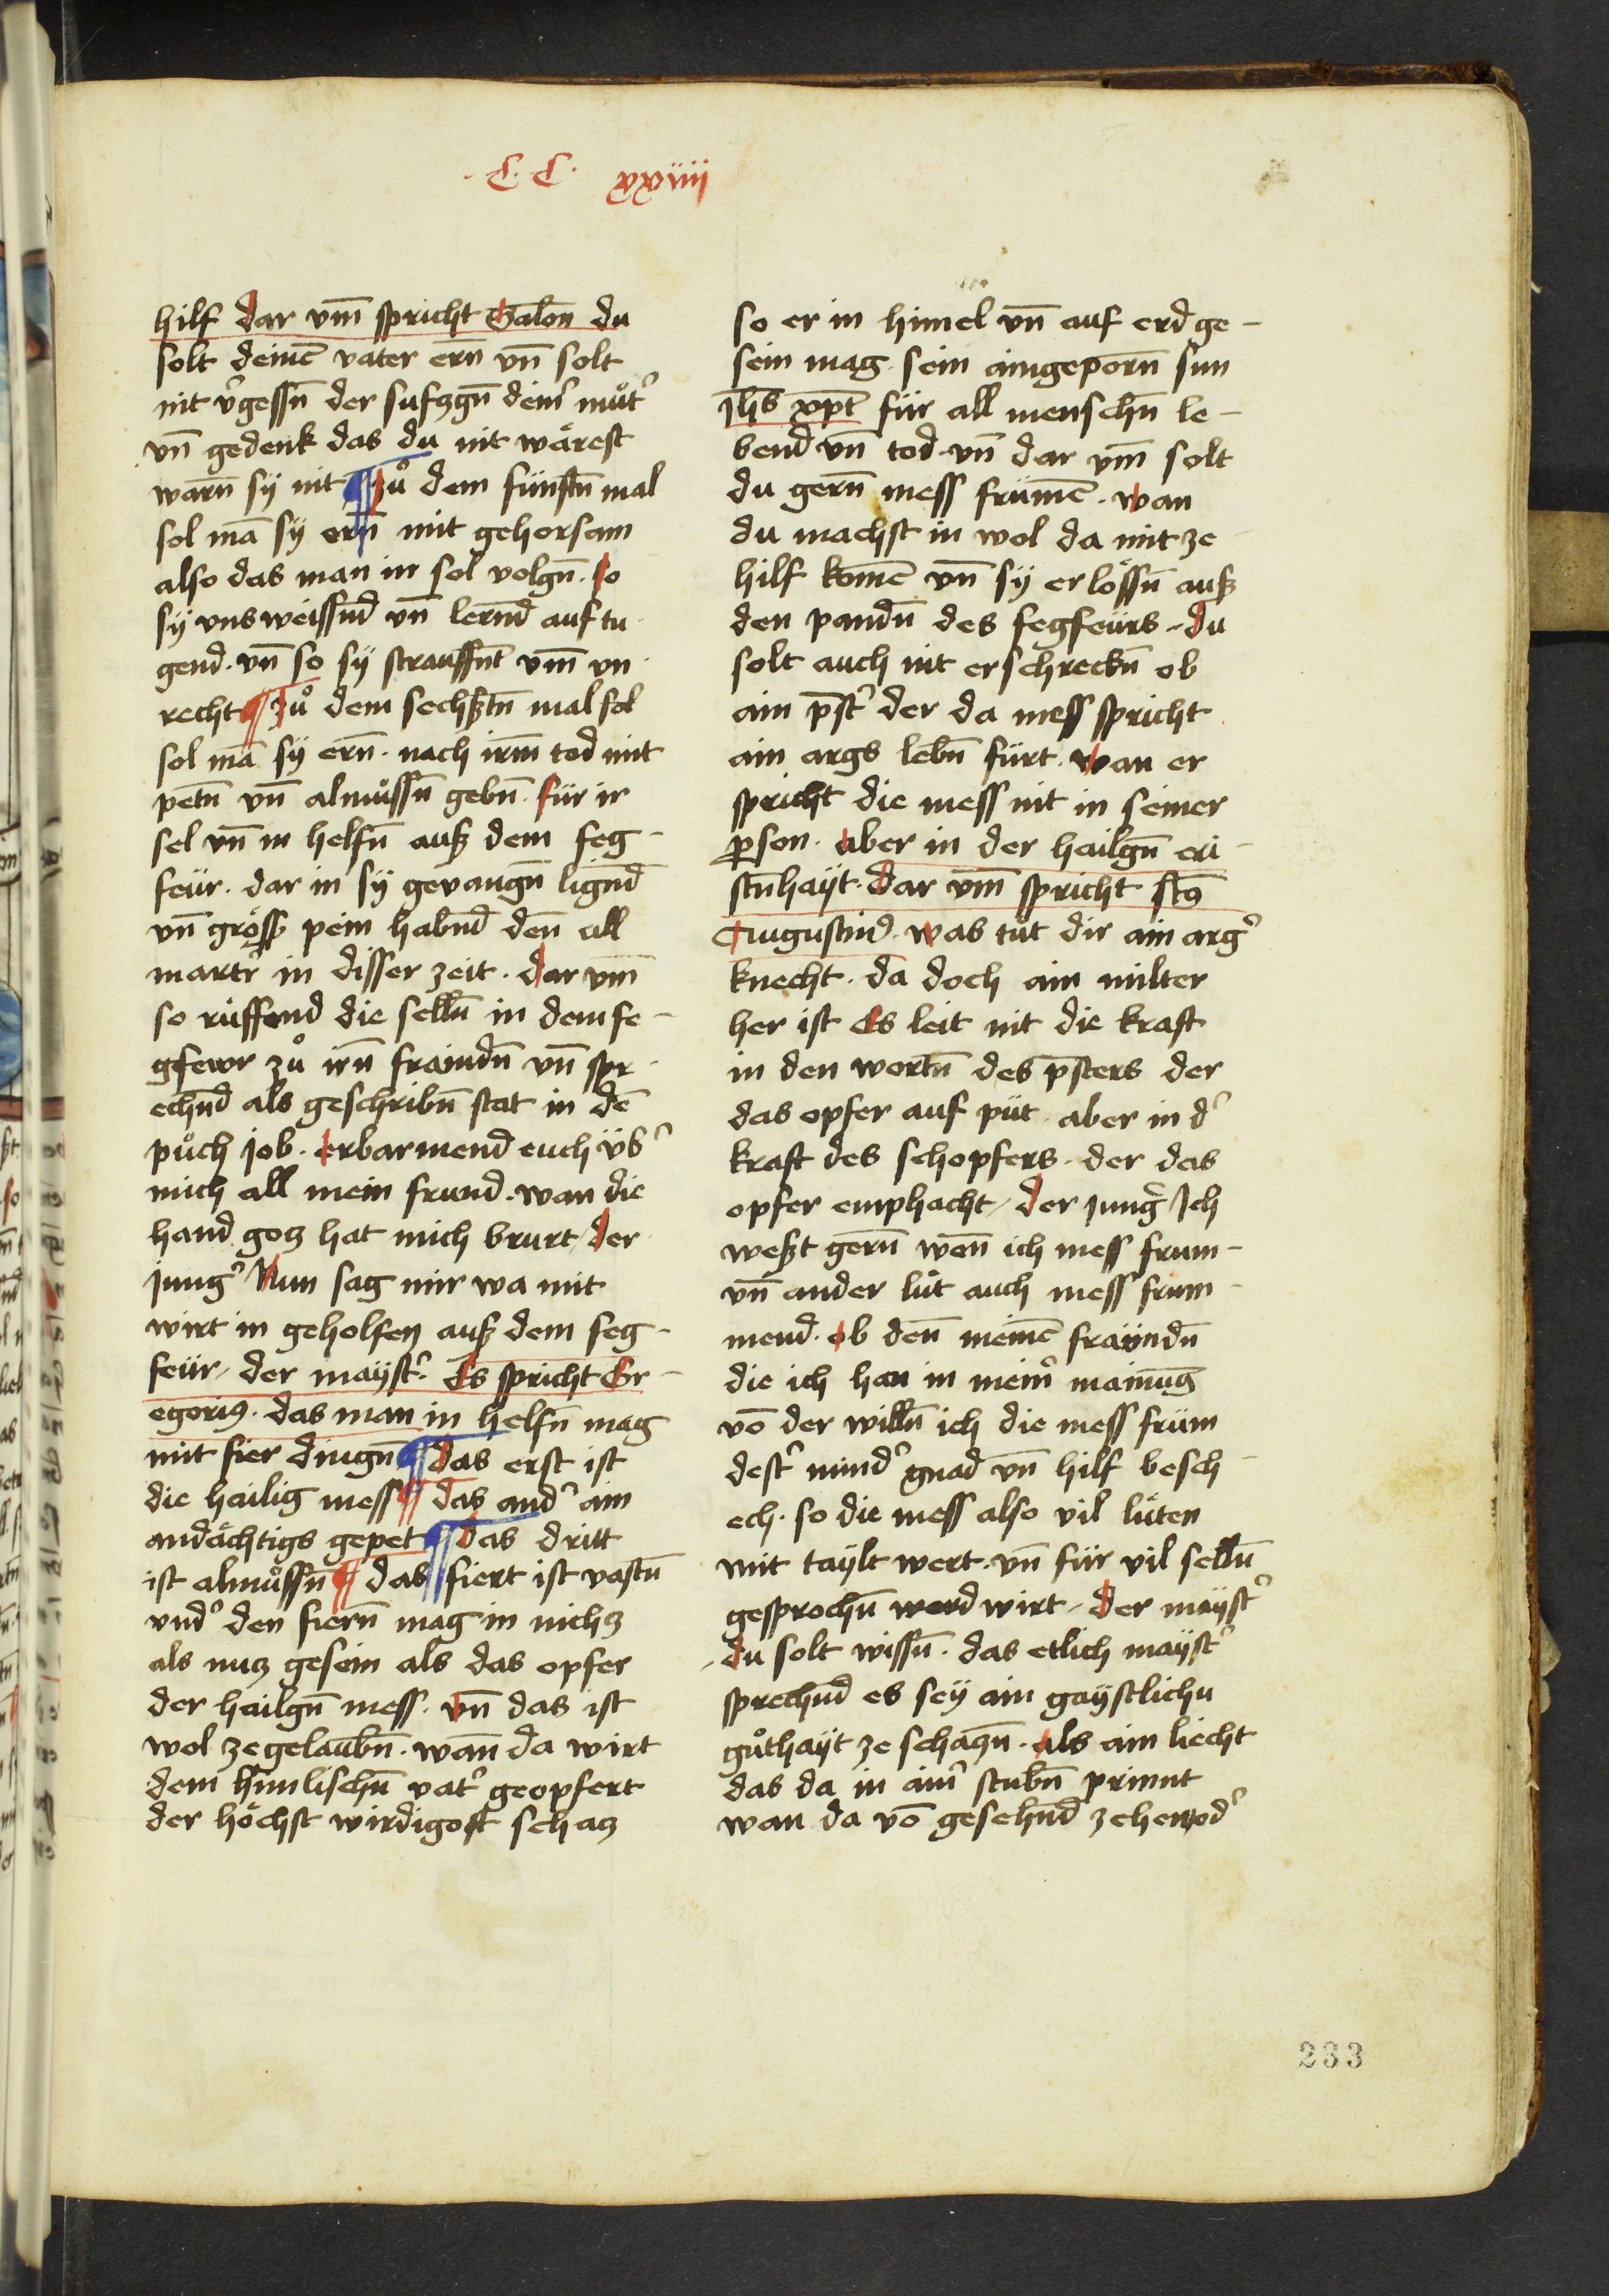 ·C·C· xxiiij
hilf dar vm̄ spricht Salon̄ du
solt deinē vater ern̄ vn̄ solt
nit v̾gessn̄ der sufzgn̄ dein̾ muͦt̾
vn̄ gedenk das du nit wärest
warn̄ sy nit ¶ Zuͦ dem fünftn̄ mal
sol mā sy ern̄ mit gehorsam
also das man in sol volgn̄. so
sy vns weissnd̄ vn̄ lernd̄ auf tu
gend. vn̄ so sy strauffnt̄ vm̄ vn
recht ¶ Zuͦ dem sechßtn̄ mal sol
sol mā sy ern̄. nach irm̄ tod mit
petn̄ vn̄ almuͦssn̄ gebn̄. für ir
sel vn̄ in helfn̄ auß dem feg-
feür. dar in sy gevangn̄ lignd̄
vn̄ gröss pein habnd̄ den̄ all
martr̾ in disser zeit. dar vm̄
so rüffend die selln̄ in dem fe-
gfewr zuͦ irn̄ fraindn̄ vn̄ spr
echnd̄ als geschribn̄ stat in dē
puͦch job. erbarmend euch üb̾
mich all mein frund. wan die
hand goz hat mich brurt / der
jung̾ Nun sag mir wa mit
wirt in geholfen auß dem feg-
feür / der mayst̾. Es spricht Gr-
egoriꝰ. das man in helfn̄ mag
mit fier dingn̄ ¶ das erst ist
die heilig mess ¶ das and̾ ain
andächtigs gepet ¶ das dritt
ist almuͦssn̄ ¶ das fiert ist vastn̄
vnd̾ den fiern̄ mag in nichz
als nuz gesein als das opfer
der hailgn̄ mess. vn̄ das ist
wol ze gelaubn̄. wan̄ da wirt
dem himlischn̄ vat̾ geopfert
der höchst wirdigost schaz
so er in himel vn̄ auf erd ge-
sein mag. sein aingeporn̄ sun
Jhs̄ xpt̄ für all menschn̄ le-
bend vn̄ tod. vn̄ dar vm̄ solt
du gern̄ mess frümē. wan
du machst in wol da mit ze
hilf komē vn̄ sy erlössn̄ auß
den pandn̄ des fegfeürs. du
solt auch nit erschreckn̄ ob
ain pst̾ der da mess spricht
ain args lebn̄ fürt. wan er
spricht die mess nit in seiner
ꝑson. aber in der hailgn̄ cri
stnhayt. dar vm̄ spricht stꝰ
Augustinꝰ. was tuͦt dir ain arg̾
knecht. da doch ain milter
her ist Es leit nit die kraft
in den wortn̄ des psters der
das opfer auf püt. aber in d̾
kraft des schopfers. der das
opfer emphacht / der jung̾ Ich
weßt gern̄ wen̄ ich mess frum-
vn̄ ander lüt auch mess frum-
mend. ob den̄ meinē fraündn̄
die ich han in mein̾ mainūg
vō der willn̄ ich die mess früm
dest̾ mind̾ gnad vn̄ hilf besch
ech. so die mess also vil lüten
mit taylt wert. vn̄ für vil selln̄
gesprochn̄ werd wirt / der mayst̾
du solt wissn̄. das etlich mayst̾
sprechnd̄ es sey ain gaystlichu
guͦthayt ze schazn̄. als ain liecht
das da in ain̾ stubn̄ prinnt
wan da vō gesehnd̄ zehen od̾
233